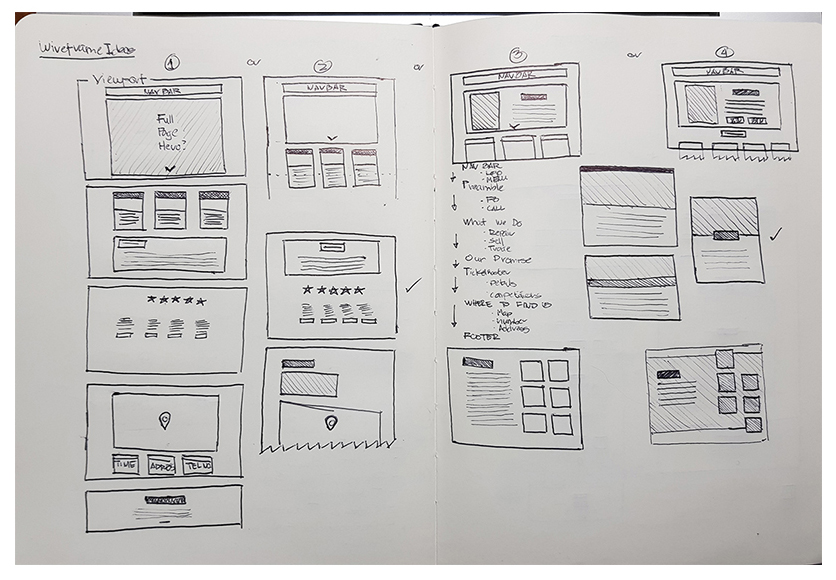 Wireframe Ideas
① or ② or
Viewport
NAVBAR
Full
Page
Hero?
NAVBAR
TIME ADDRESS TEL NO
③ or ④
NAVBAR
NAVBAR
NAV BAR
· LOGO
· MENU
Preamble
· FB
· CALL
What We Do
· Repair
· Sell
· Trade
Our Promise
· Details
· Competitions
WHERE TO FIND US
· Map
· Number
· Address
FOOTER